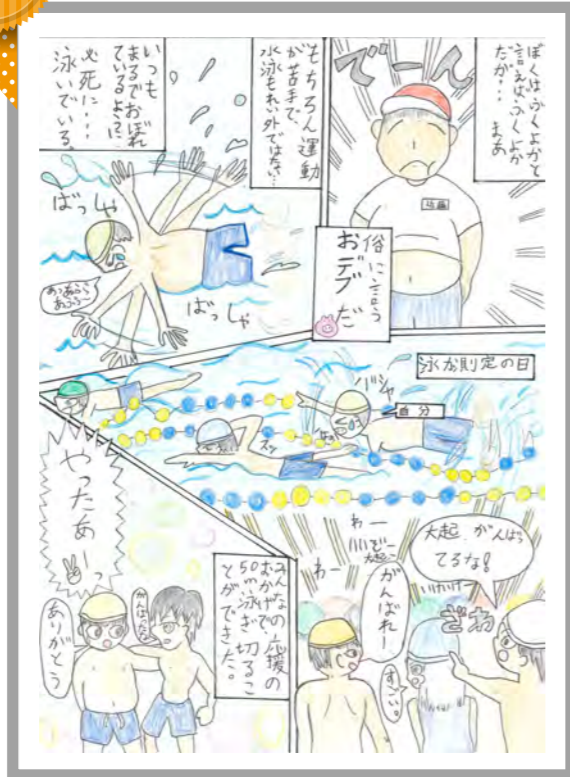 ぼくは、ふくよかと
言えばふくよか
だが… まあ
でーん
佐藤
俗に言う
おデブだ
もちろん運動
が苦手で、
水泳もれい外ではない…
いつも
まるでおぼれ
ているように
必死に…
泳いでいる。
ばっしゃ
ばっしゃ
あっあふら
あふら〜
泳力測定の日
バシャ
自分
スッ
大起、がんばっ
てるな!
いけいけー
ざわ
わー
わー
がんばれー
すごい。
みんなの応援の
おかげで、
50m泳ぎ切るこ
とができた。
やったあーっ
がんばったな
ありがとう